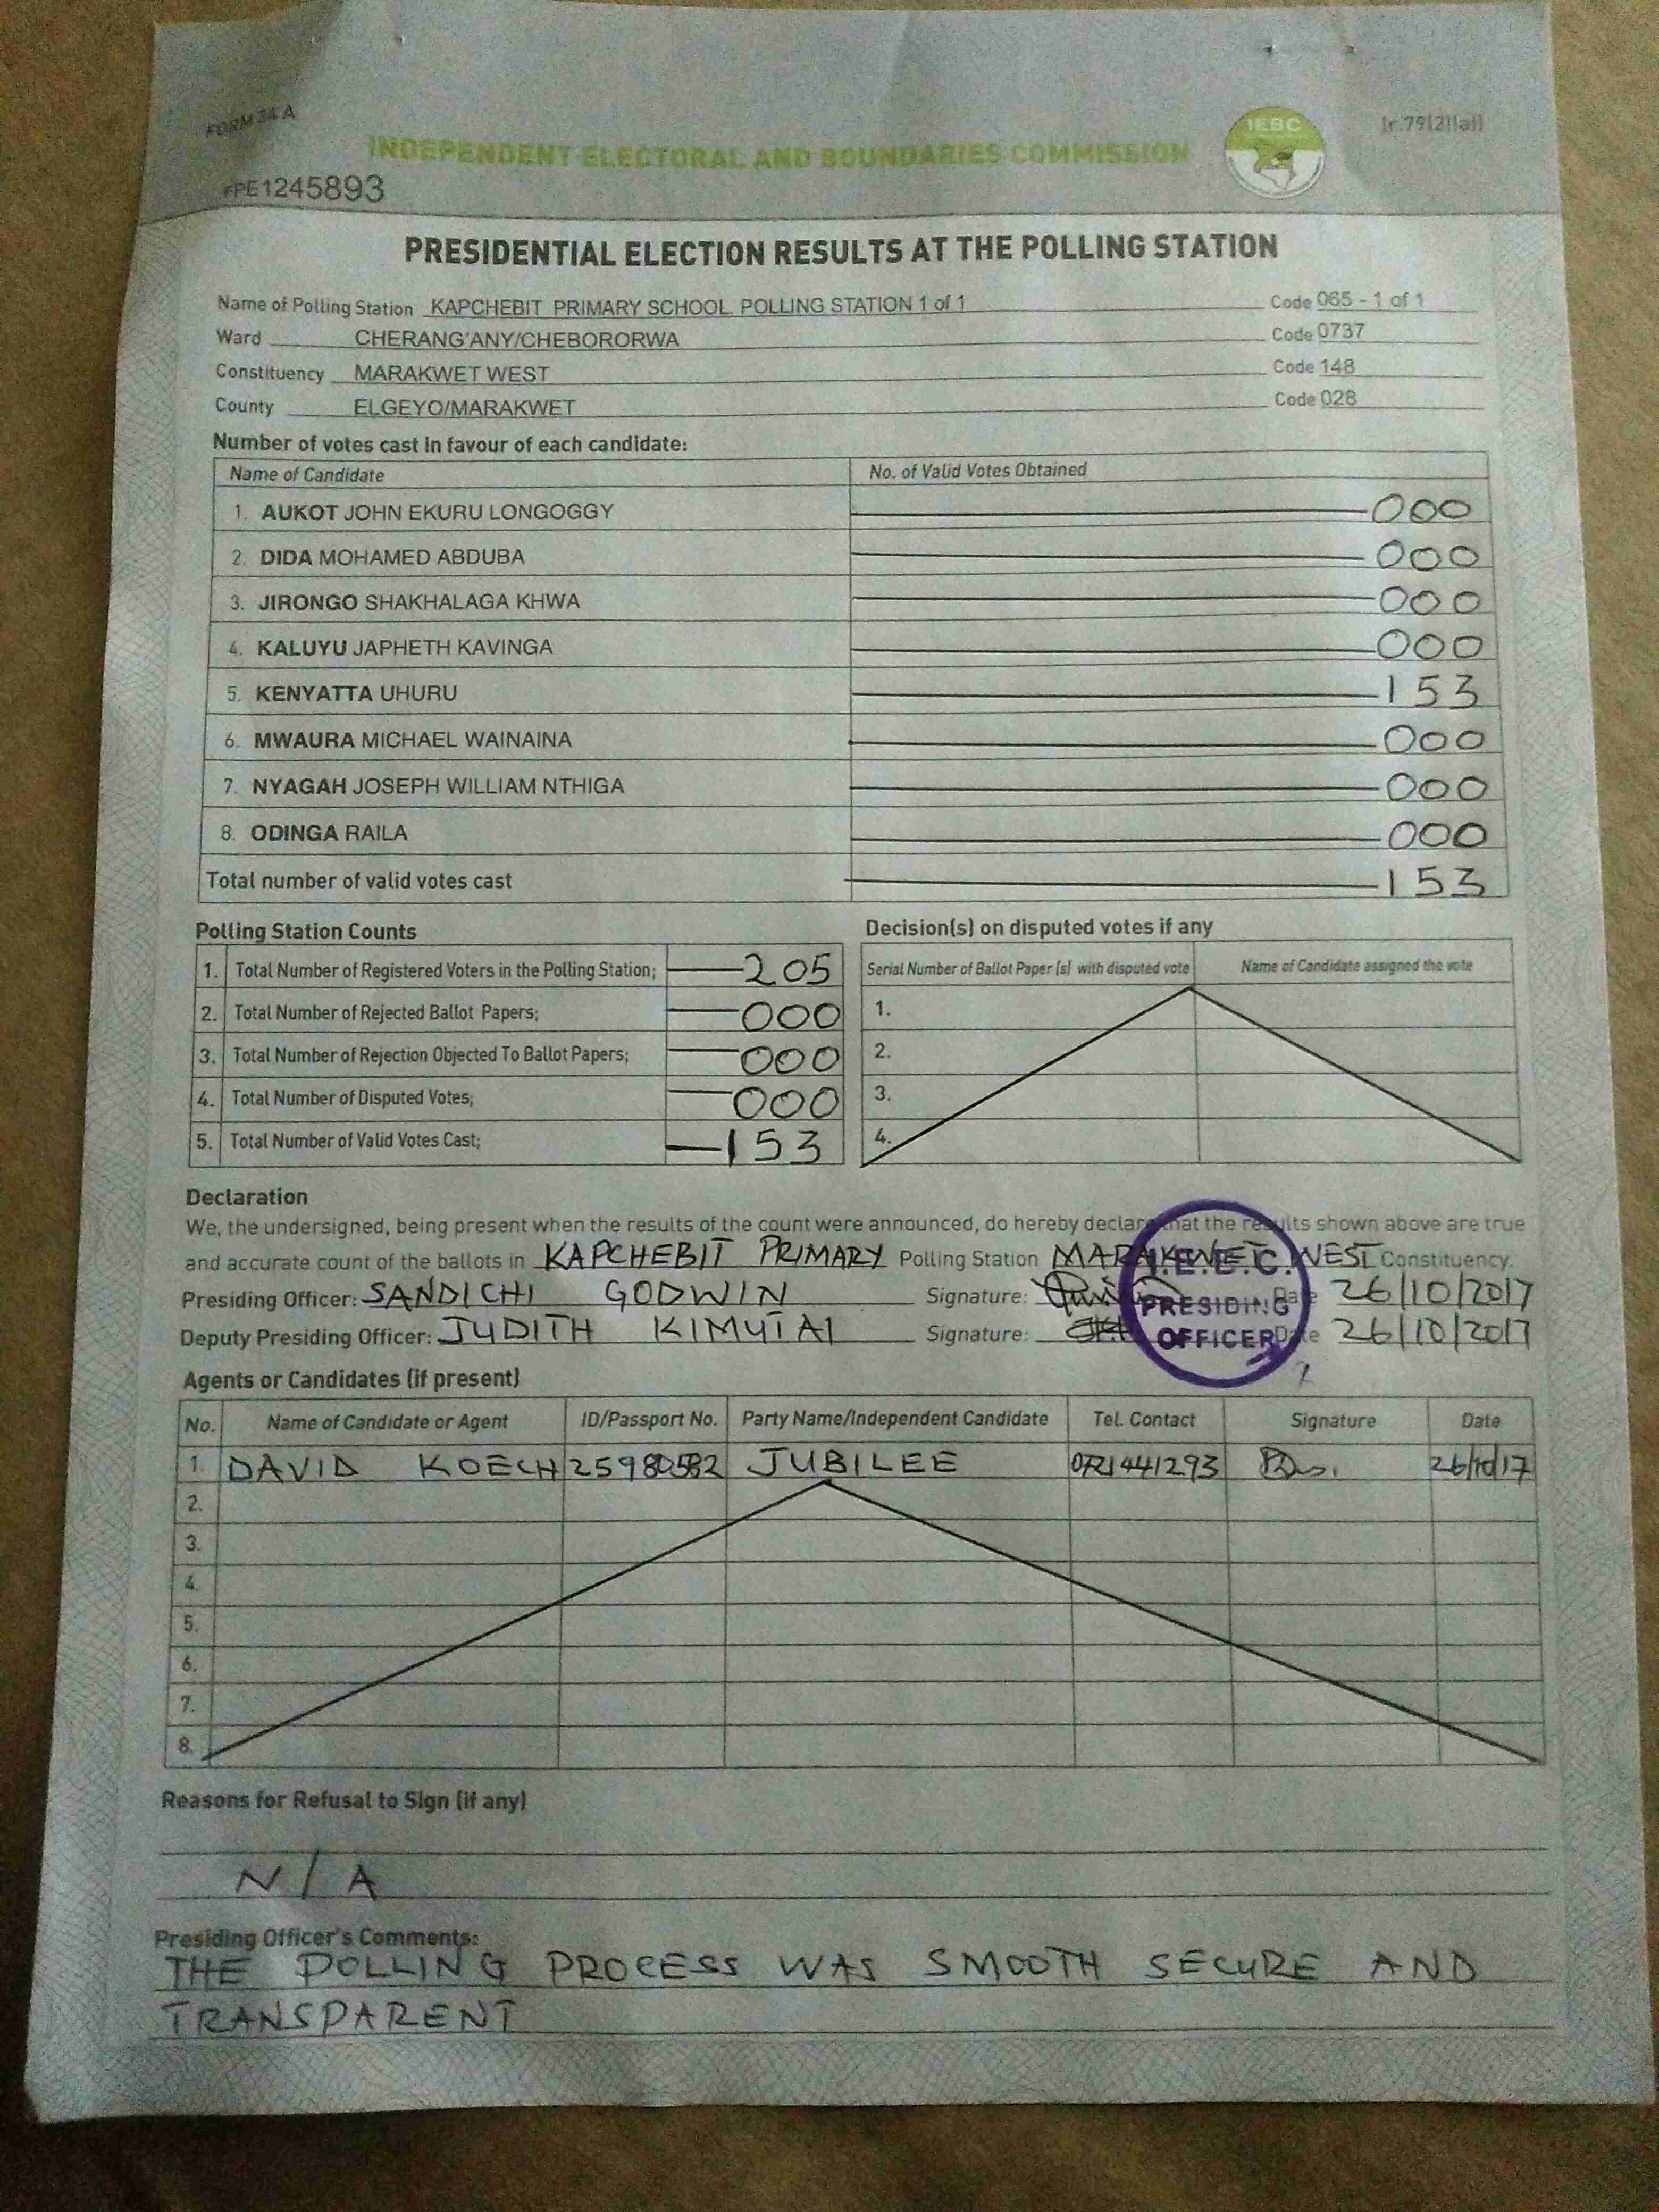 FORM 34 A
IEBC
[r.79(2)(a)]
INDEPENDENT ELECTORAL AND BOUNDARIES COMMISSION
FPE1245893
PRESIDENTIAL ELECTION RESULTS AT THE POLLING STATION
Name of Polling Station KAPCHEBIT PRIMARY SCHOOL POLLING STATION 1 of 1 Code 065 - 1 of 1
Ward CHERANG'ANY/CHEBORORWA Code 0737
Constituency MARAKWET WEST Code 148
County ELGEYO/MARAKWET Code 028
Number of votes cast in favour of each candidate:
Name of Candidate No. of Valid Votes Obtained
1. AUKOT JOHN EKURU LONGOGGY 000
2. DIDA MOHAMED ABDUBA 000
3. JIRONGO SHAKHALAGA KHWA 000
4. KALUYU JAPHETH KAVINGA 000
5. KENYATTA UHURU 153
6. MWAURA MICHAEL WAINAINA 000
7. NYAGAH JOSEPH WILLIAM NTHIGA 000
8. ODINGA RAILA 000
Total number of valid votes cast 153
Polling Station Counts
1. Total Number of Registered Voters in the Polling Station; 205
2. Total Number of Rejected Ballot Papers; 000
3. Total Number of Rejection Objected To Ballot Papers; 000
4. Total Number of Disputed Votes; 000
5. Total Number of Valid Votes Cast; 153
Decision(s) on disputed votes if any
Serial Number of Ballot Paper (s) with disputed vote Name of Candidate assigned the vote
1.
2.
3.
4.
Declaration
We, the undersigned, being present when the results of the count were announced, do hereby declare that the results shown above are true
and accurate count of the ballots in KAPCHEBIT PRIMARY Polling Station MARAKWET WEST Constituency.
Presiding Officer: SANDICHI GODWIN Signature: Date 26/10/2017
Deputy Presiding Officer: JUDITH KIMUTAI Signature: Date 26/10/2017
I.E.B.C.
PRESIDING
OFFICER
Agents or Candidates (if present)
No. Name of Candidate or Agent ID/Passport No. Party Name/Independent Candidate Tel. Contact Signature Date
1. DAVID KOECH 25980582 JUBILEE 0721441293 26/10/17
2.
3.
4.
5.
6.
7.
8.
Reasons for Refusal to Sign (if any)
N/A
Presiding Officer's Comments:
THE POLLING PROCESS WAS SMOOTH SECURE AND
TRANSPARENT